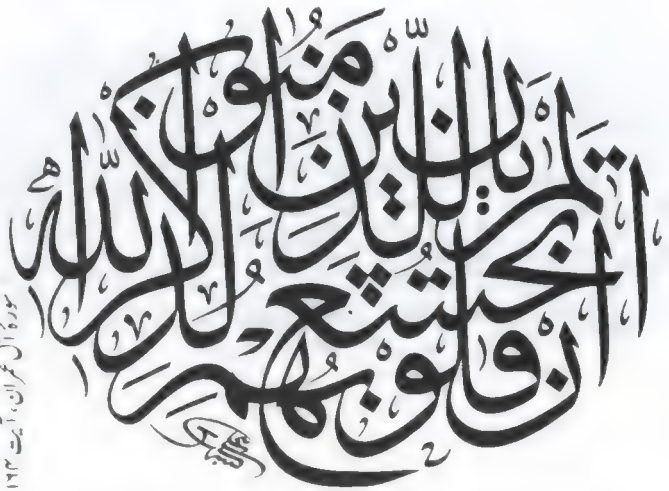 الم يان للذين امنوا
ان تخشع قلوبهم لذكر الله
سورۂ آل عمران، آیت ۱۶۴